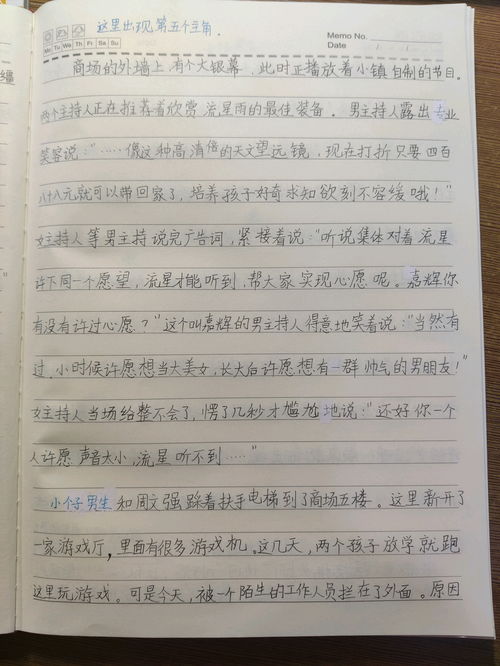 这里出现第五个主角.
Memo No.
Mo Tu We Th Fr Sa Su
Date / /
商场的外墙上,有个大银幕,此时正播放着小镇自制的节目。
两个主持人正在推荐着欣赏流星雨的最佳装备。男主持人露出专业
笑容说:"……像这种高清倍的天文望远镜,现在打折只要四百
八十八元就可以带回家了,培养孩子好奇求知欲刻不容缓哦!"
女主持人等男主持说完广告词,紧接着说:"听说集体对着流星
许下同一个愿望,流星才能听到,帮大家实现心愿呢。嘉辉你
有没有许过心愿?"这个叫嘉辉的男主持人得意地笑着说:"当然有
过,小时候许愿想当大美女,长大后许愿想有一群帅气的男朋友!"
女主持人当场给整不会了,愣了几秒才尴尬地说:"还好你一个
人许愿声音太小,流星听不到……"
小个子男生和周文强踩着扶手电梯到了商场五楼。这里新开了
一家游戏厅,里面有很多游戏机。这几天,两个孩子放学就跑
这里玩游戏。可是今天,被一个陌生的工作人员拦在了外面。原因